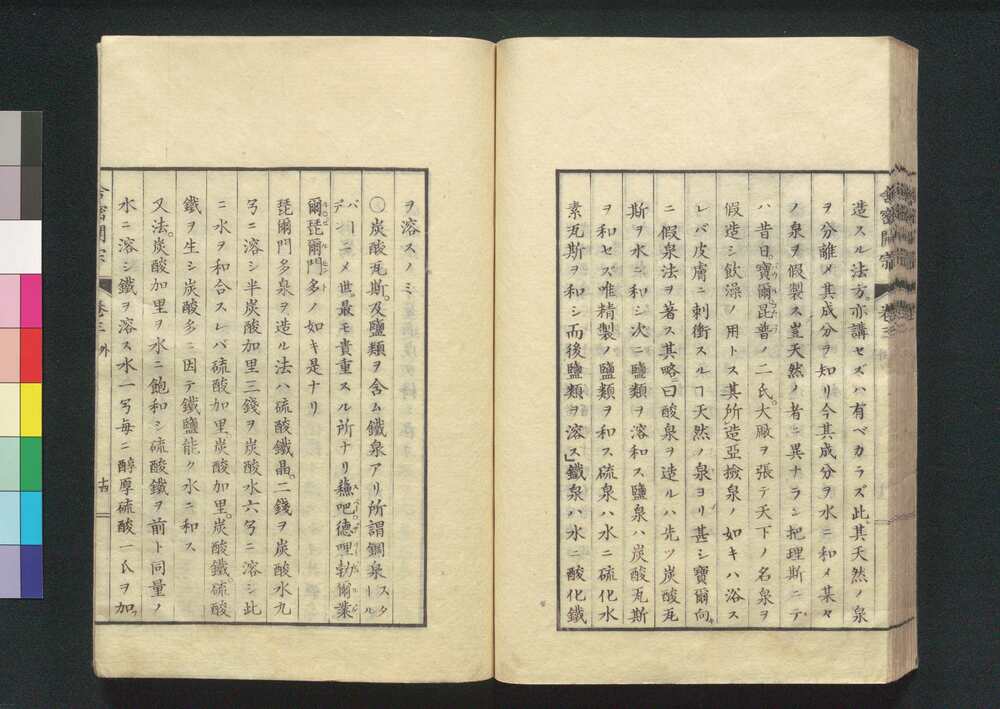 造スル法方亦講セズハ有ベカラズ此其天然ノ泉
ヲ分離メ其成分ヲ知リ今其成分ヲ水ニ和メ某々
ノ泉ヲ假製ス豈天然ノ者ニ異ナラン把理斯ニテ
ハ昔日寶爾昆普ノ二氏大厰ヲ張テ天下ノ名泉ヲ
假造シ飲澡ノ用トス其所造亞撿泉ノ如キハ浴ス
レバ皮膚ニ刺衝スルヿ天然ノ泉ヨリ甚シ寶爾向
ニ假泉法ヲ著ス其略ニ曰酸泉ヲ造ルハ先ツ炭酸瓦
斯ヲ水ニ和シ次ニ鹽類ヲ溶和ス鹽泉ハ炭酸瓦斯
ヲ和セズ唯精製ノ鹽類ヲ和ス硫泉ハ水ニ硫化水
素瓦斯ヲ和シ而後鹽類ヲ溶ス」鐵泉ハ水ニ酸化鐵
ヲ溶スノミ
○炭酸瓦斯及鹽類ヲ含ム鐵泉アリ所謂鋼泉スタール
バーデンニメ世最モ貴重スル所ナリ蘓吧德哩勃爾業
爾琵爾門多ノ如キ是ナリ
琵爾門多泉ヲ造ル法ハ硫酸鐵晶二錢ヲ炭酸水九
ニ溶シ半炭酸加里三錢ヲ炭酸水六ニ溶シ此
ニ水ヲ和合スレバ硫酸加里炭酸加里炭酸鐵硫酸
鐵ヲ生シ炭酸多ニ因テ鐵鹽能ク水ニ和ス
又法炭酸加里ヲ水ニ飽和シ硫酸鐵ヲ前ト同量ノ
水ニ溶シ鐵ヲ溶ス水一每ニ醇厚硫酸一瓜ヲ加
舎密開宗
卷三
外
舎密開宗
卷三